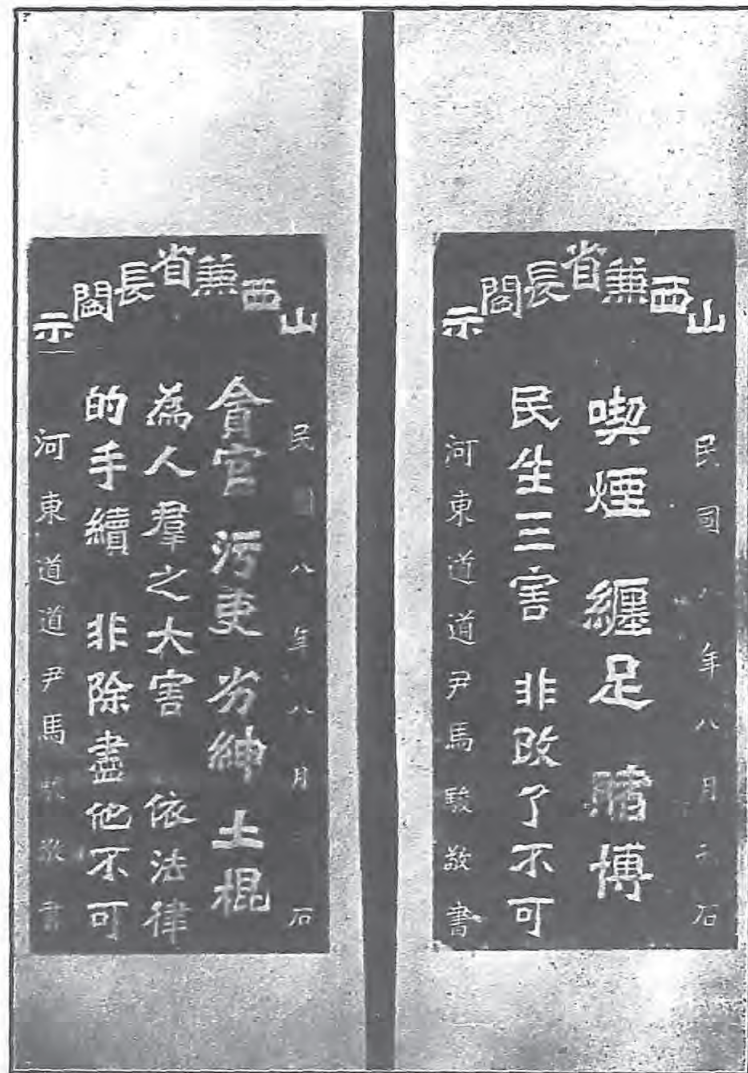 山西兼省長閻示
民國八年八月立石
喫煙 纏足 賭博
民生三害 非改了不可
河東道道尹馬駿敬書
山西兼省長閻示
民國八年八月 石
貪官 污吏 劣紳 土棍
為人羣之大害 依法律
的手續 非除盡他不可
河東道道尹馬駿敬書